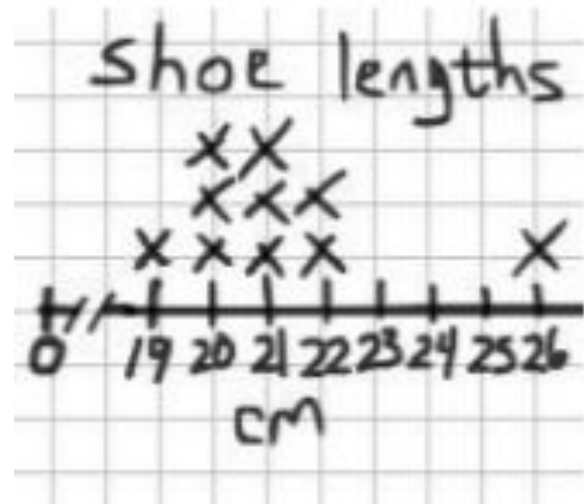 Shoe lengths
X X
X X X
X X X X X
0 19 20 21 22 23 24 25 26
cm